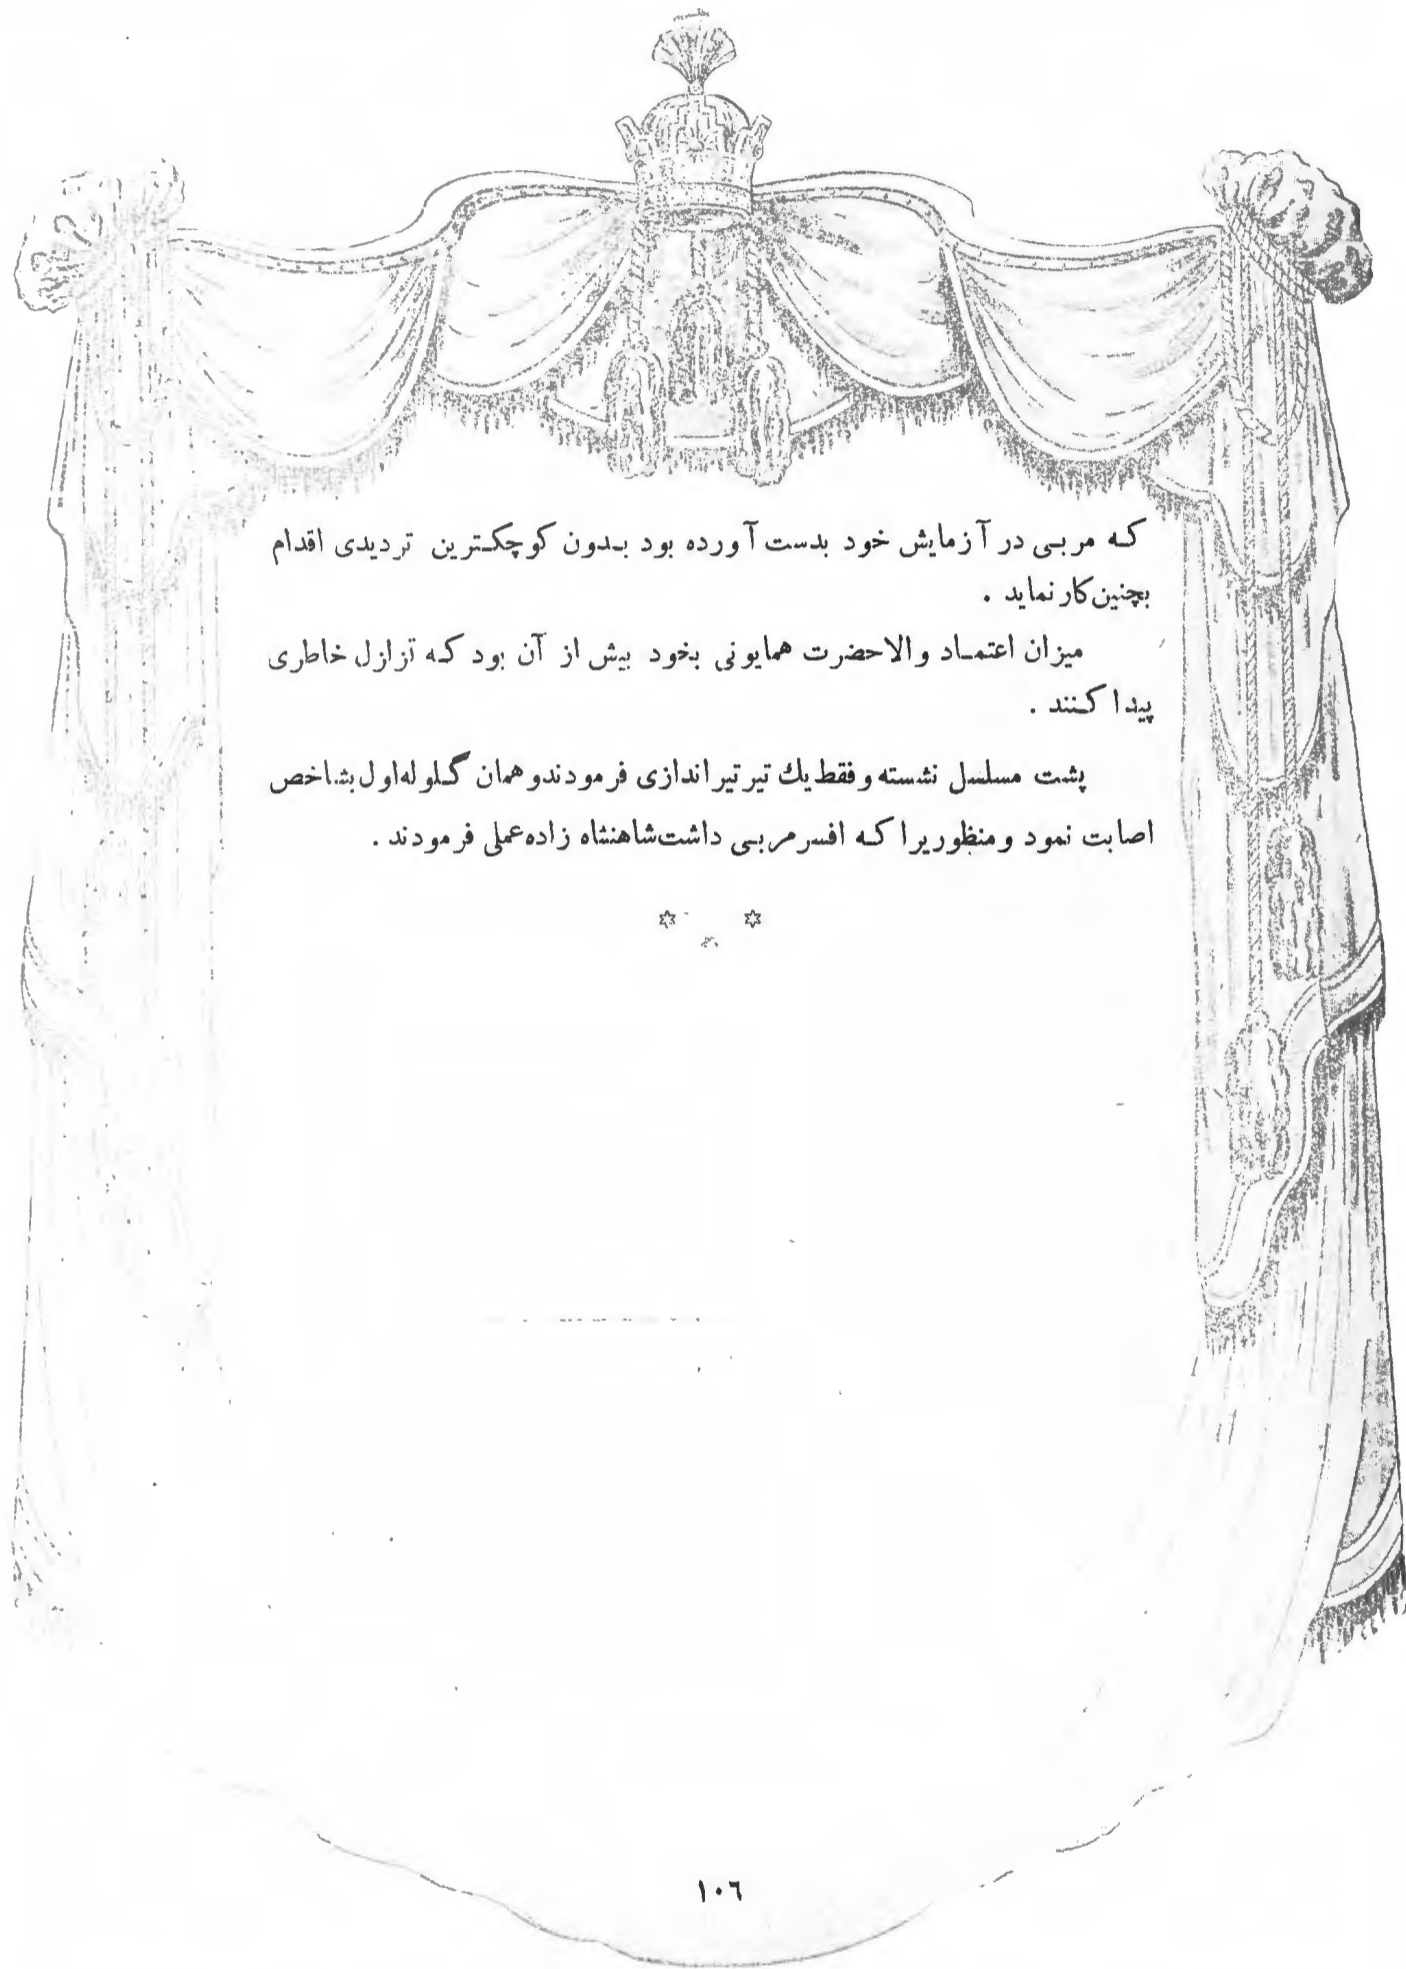 که مربی در آزمایش خود بدست آورده بود بدون کوچکترین تردیدی اقدام
بچنین کار نماید .
میزان اعتماد والاحضرت همایونی بخود بیش از آن بود که تزازل خاطری
پیدا کنند .
پشت مسلسل نشسته و فقط يك تیر تیر اندازی فرمودند و همان گلوله اول بشاخص
اصابت نمود و منظوریرا که افسر مربی داشت شاهنشاه زاده عملی فرمودند .
* * *
١٠٦